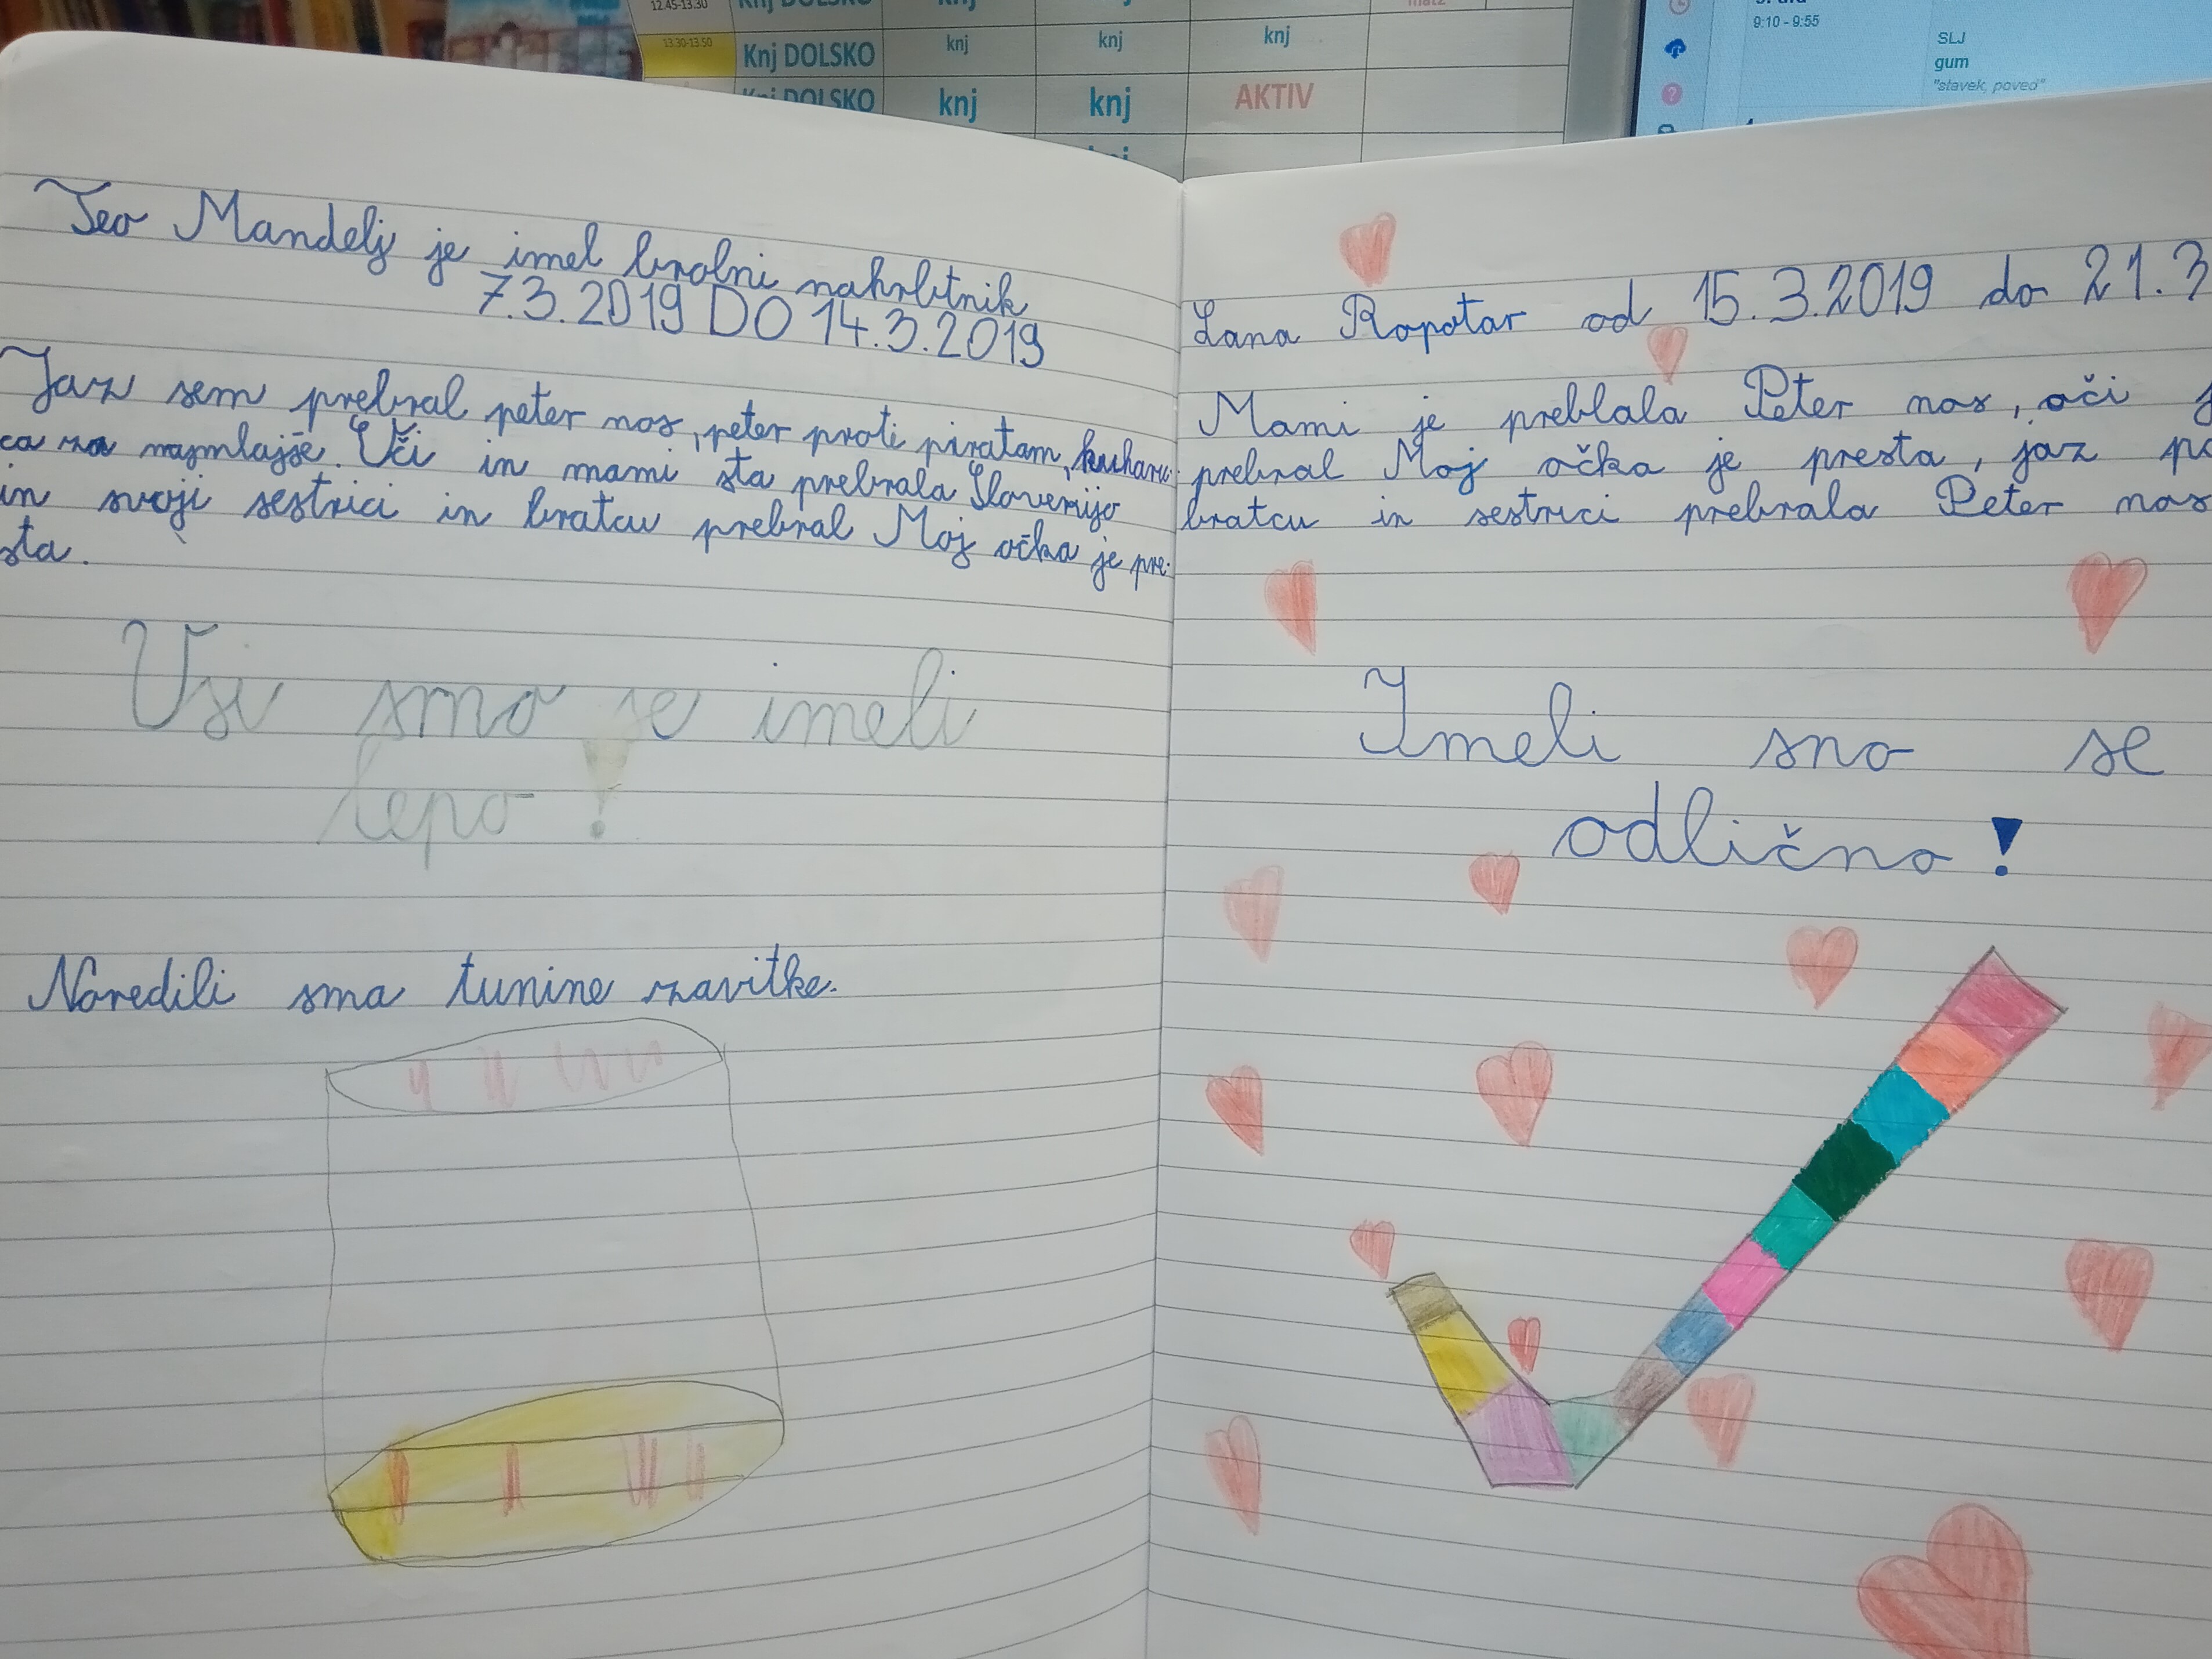 12.45-13.30 Knj DOLSKO knj knj
13.30-13.50 Knj DOLSKO knj knj knj
Knj DOLSKO knj knj AKTIV
knj
9:10 - 9:55
SLJ
gum
"stavek, poved"
Teo Mandelj je imel bralni nahrbtnik
7.3.2019 DO 14.3.2019
Jaz sem prebral peter nos, peter proti piratam, kuhari
ca za najmlajše. Oči in mami sta prebrala Slovenijo
in svoji sestrici in bratcu prebral Moj očka je pre
sta.
Vsi smo se imeli
lepo!
Naredili smo tunine zavitke.
Lana Ropotar od 15.3.2019 do 21.3
Mami je preblala Peter nos, oči j
prebral Moj očka je presta, jaz pa
bratcu in sestrici prebrala Peter nos
Imeli smo se
odlično!